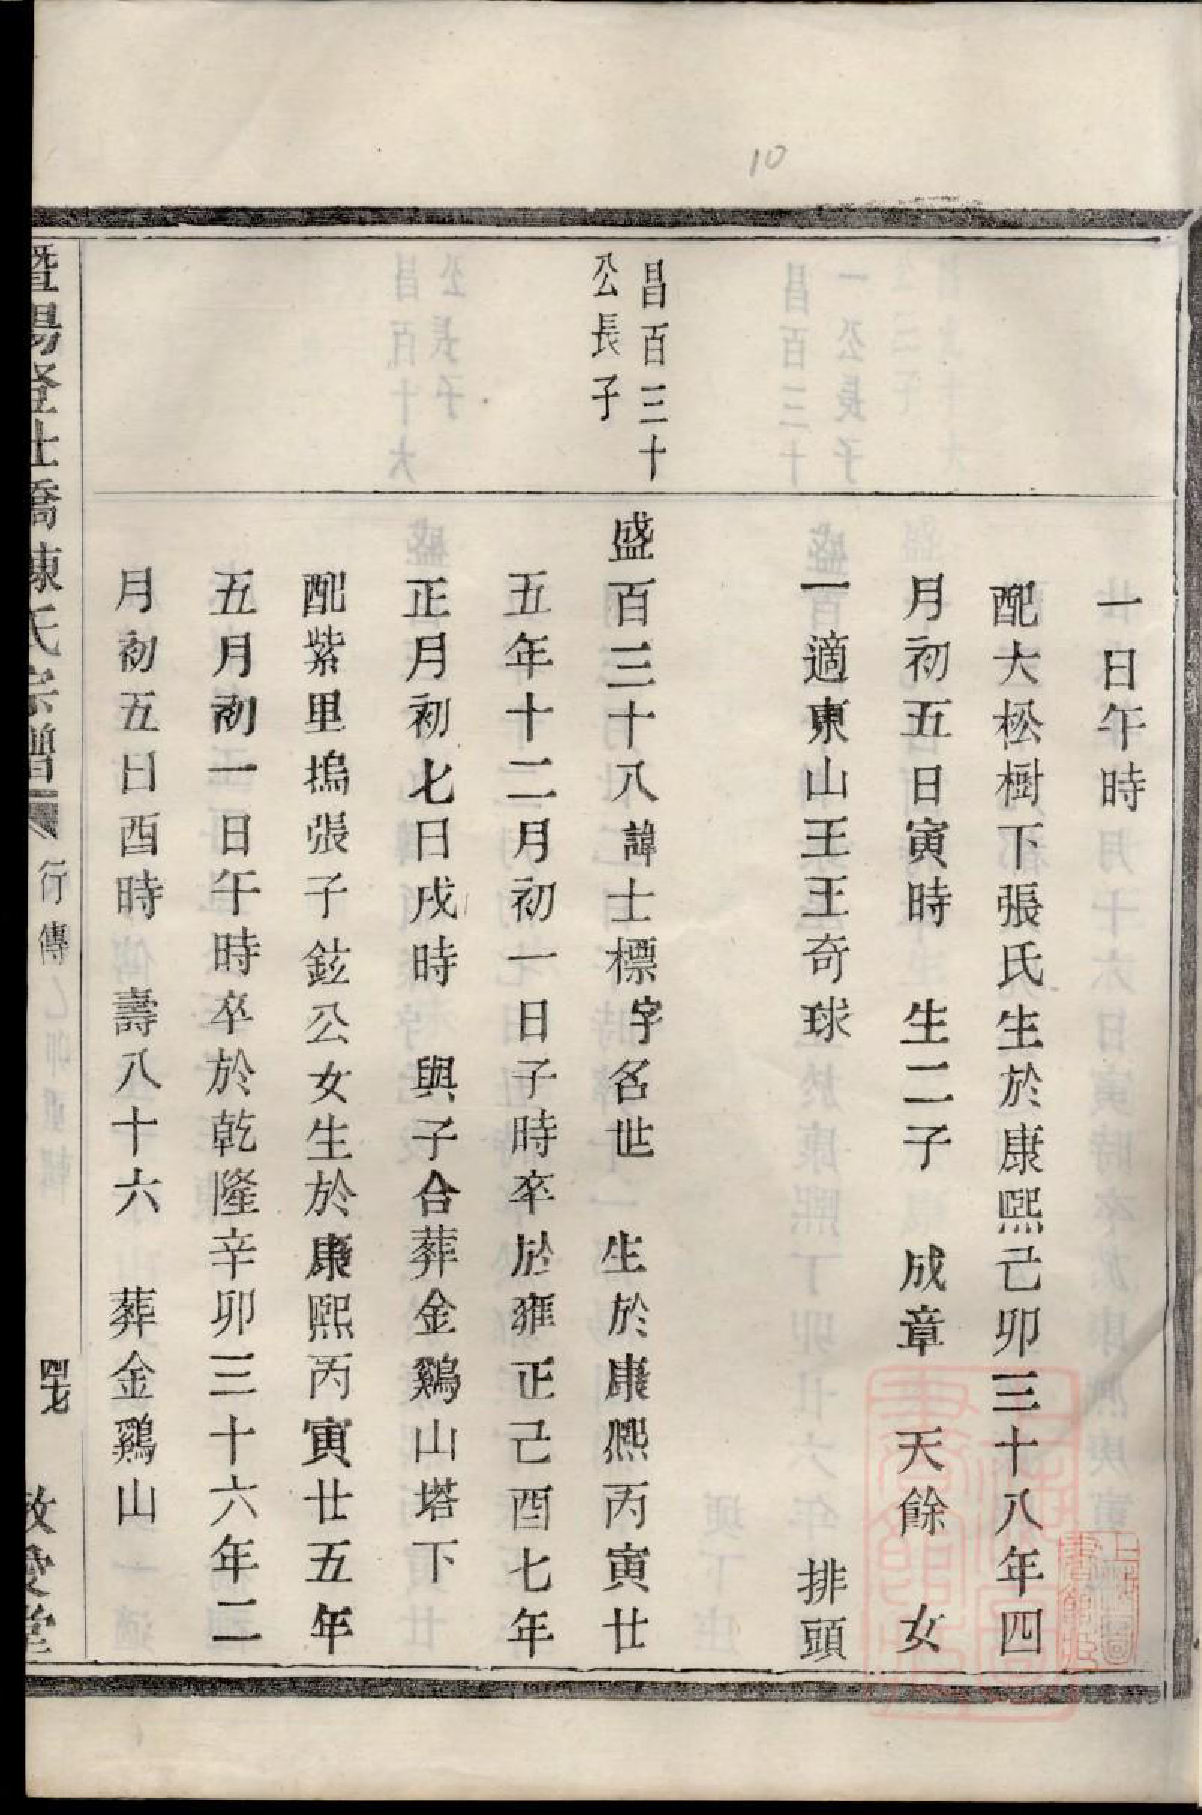 10
一日午時
配大松樹下張氏生於康熙己卯三十八年四
月初五日寅時　生二子　成章　天餘　女
一適東山王王奇球　排頭
昌百三十
公長子
盛百三十八諱士標字名世　生於康熙丙寅廿
五年十二月初一日子時卒於雍正己酉七年
正月初七日戌時　與子合葬金鷄山塔下
配紫里塢張子鉉公女生於康熙丙寅廿五年
五月初一日午時卒於乾隆辛卯三十六年二
月初五日酉時壽八十六　葬金鷄山
暨陽登仕橋陳氏宗譜
行傳
四七
敦愛堂